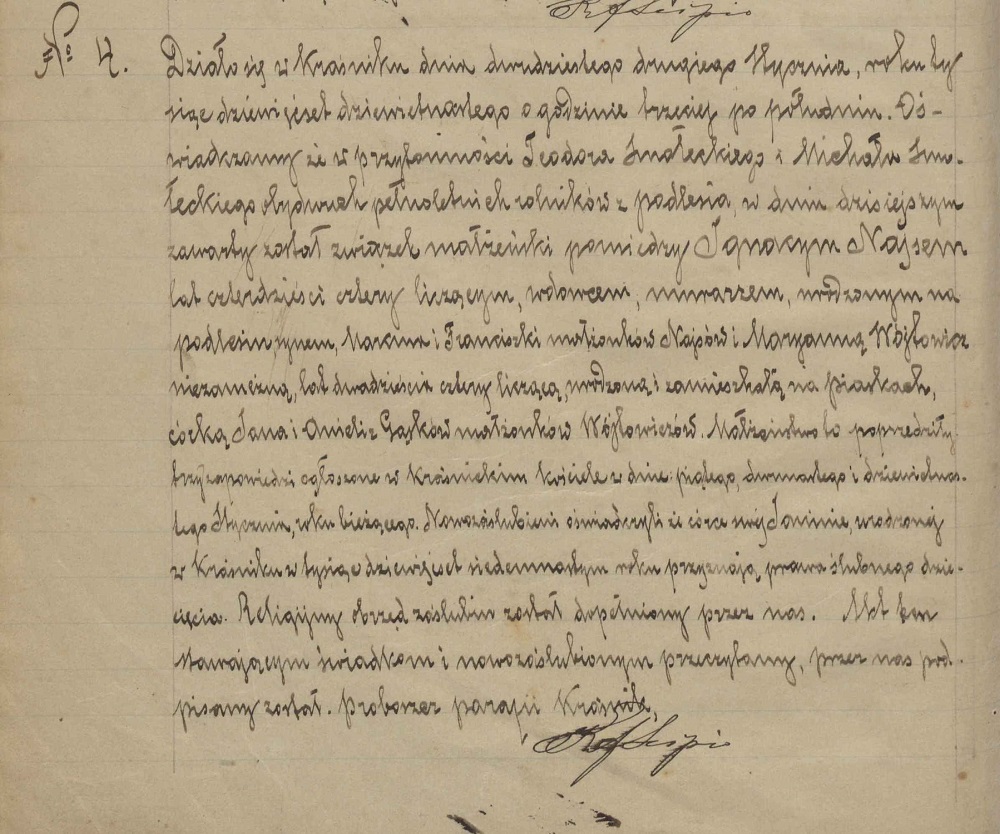 № 4.
Działo się w Kraśniku dnia dwudziestego drugiego stycznia, roku ty
siąc dziewięćset dziewietnastego o godzinie trzeciej po południu. Oś-
wiadczamy że w przytomności Teodora Smołeckiego i Michała Smo-
łeckiego obydwuch pełnoletnich rolników z podlesia, w dniu dzisiejszym
zawarty został związek małżeński pomiedzy Ignacym Najsem
lat czterdzieści cztery liczącym, wdowcem, murarzem, urodzonym na
podlesiu synem, Marcina i Franciszki małżonków Najsów i Maryanną Wójtowicz
niezamężną, lat dwadzieścia cztery liczącą, urodzoną i zamieszkałą na Piaskach,
córką Jana i Anieli z Gąsków małżonków Wójtowiczów. Małżeństwo to poprzedziły
trzy zapowiedzi ogłoszone w Kraśnickim kościele w dnie: piątego, dwunastego i dziewietnas-
tego stycznia, roku bieżącego. Nowozaślubieni oświadczyli że córce swej Janinie, urodzonej
w Kraśniku w tysiąc dziewięćset siedemnastym roku przyznają prawa ślubnego dzie-
cięcia. Religijny obrzęd zaślubin został dopełniony przez nas. Akt ten
stawającym świadkom i nowozaślubionym przeczytany, przez nas pod-
pisany został. Proboszcz parafii Kraśnik,